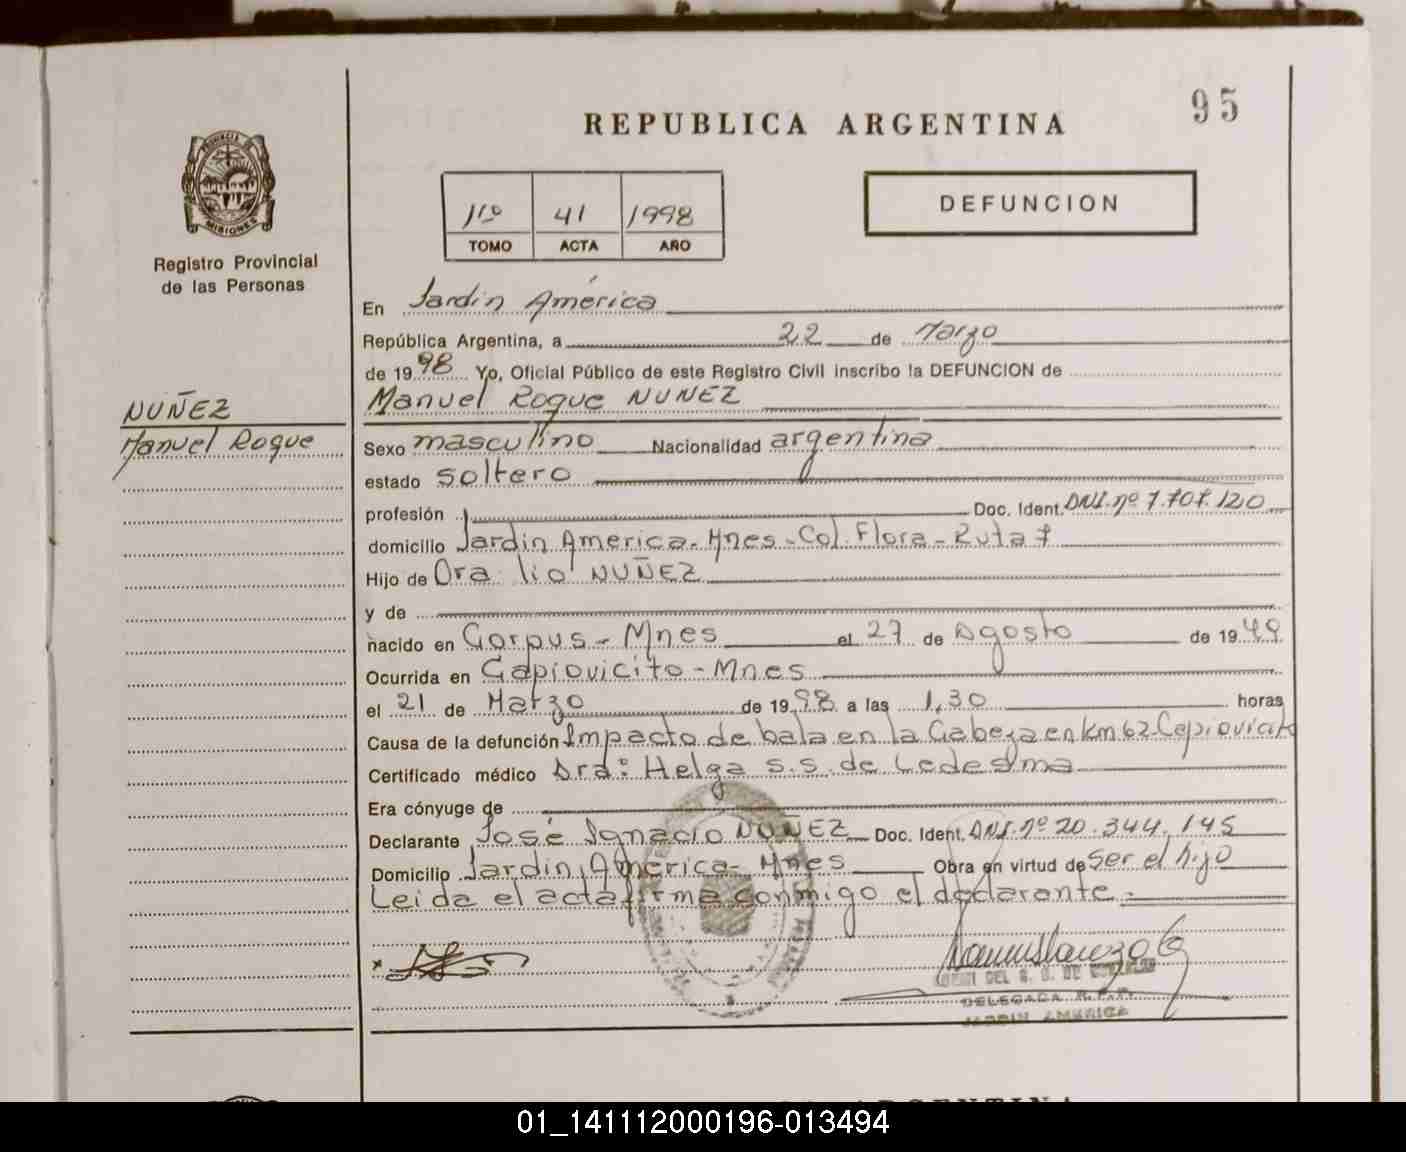 95
REPUBLICA ARGENTINA
PROVINCIA DE
MISIONES
1º 41 1998
TOMO ACTA AÑO
DEFUNCION
Registro Provincial
de las Personas
NUÑEZ
Manuel Roque
En Jardin América
República Argentina, a 22 de Marzo
de 1998 Yo, Oficial Público de este Registro Civil inscribo la DEFUNCION de
Manuel Roque NUNEZ
Sexo masculino Nacionalidad argentina
estado soltero
profesión Doc. Ident. DNI. nº 7.707.120
domicilio Jardin America - Mnes - Col. Flora - Ruta 7
Hijo de Ora lio NUÑEZ
y de
nacido en Corpus - Mnes el 27 de Agosto de 1949
Ocurrida en Capiovicito - Mnes
el 21 de Marzo de 1998 a las 1,30 horas
Causa de la defunción Impacto de bala en la Cabeza en km 62 Capiovicito
Certificado médico Dra: Helga S.S. de Ledesma
Era cónyuge de
Declarante José Ignacio NUÑEZ Doc. Ident. DNI. nº 20.344.145
Domicilio Jardin América - Mnes Obra en virtud de ser el hijo
Leida el acta firma conmigo el declarante.=
DELEGADA R.P.P.
JARDIN AMERICA
01_141112000196-013494